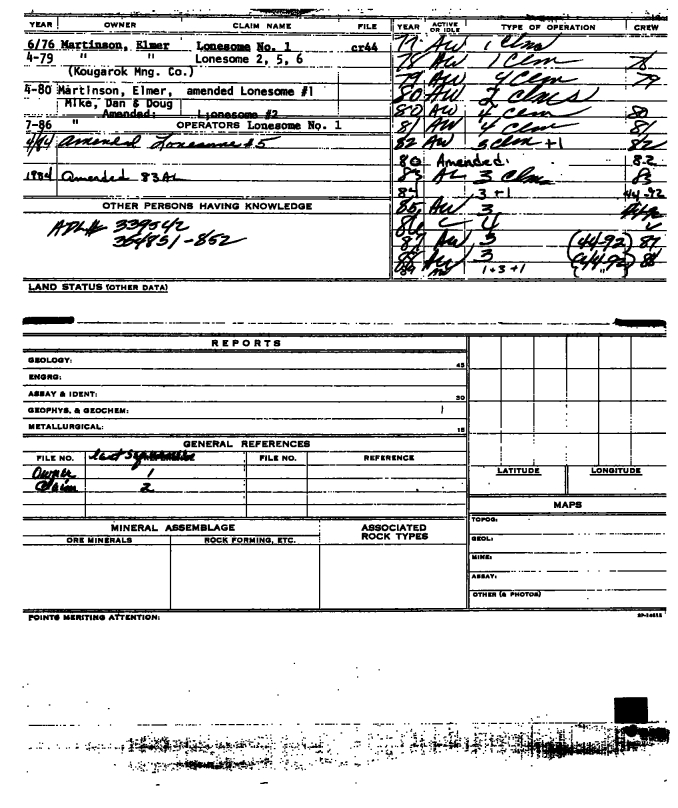 YEAR OWNER CLAIM NAME FILE
6/76 Martinson, Elmer Lonesome No. 1 cr44
4-79 " " Lonesome 2, 5, 6
(Kougarok Mng. Co.)
4-80 Martinson, Elmer, amended Lonesome #1
Mike, Dan & Doug
Amended: Lonesome #2
7-86 " OPERATORS Lonesome No. 1
4/84 Amended Lonesome #5
1984 Amended 83AL
OTHER PERSONS HAVING KNOWLEDGE
ADL# 339542
364851-852
YEAR ACTIVE OR IDLE TYPE OF OPERATION CREW
77 AW 1 Clm
78 AW 1 Clm 78
79 AW 4 Clm 79
80 AW 2 Clms
80 AW 4 Clm 80
81 AW 4 Clm 81
82 AW 3 Clm +1 82
80 Amended. 82
83 AL 3 Clm 83
84 3+1 44-92
85 AW 3
86 4
87 AW 3 (44-92) 87
88 AW 3 (44-92) 88
1+3+1 "
LAND STATUS (OTHER DATA)
REPORTS
GEOLOGY: 45
ENGRG:
ASSAY & IDENT: 30
GEOPHYS. & GEOCHEM:
METALLURGICAL: 15
GENERAL REFERENCES
FILE NO. FILE NO. REFERENCE
Owner 1
Claim 2
LATITUDE LONGITUDE
MAPS
TOPOG:
GEOL:
MINE:
ASSAY:
OTHER (& PHOTOS)
MINERAL ASSEMBLAGE ASSOCIATED ROCK TYPES
ORE MINERALS ROCK FORMING, ETC.
POINTS MERITING ATTENTION: